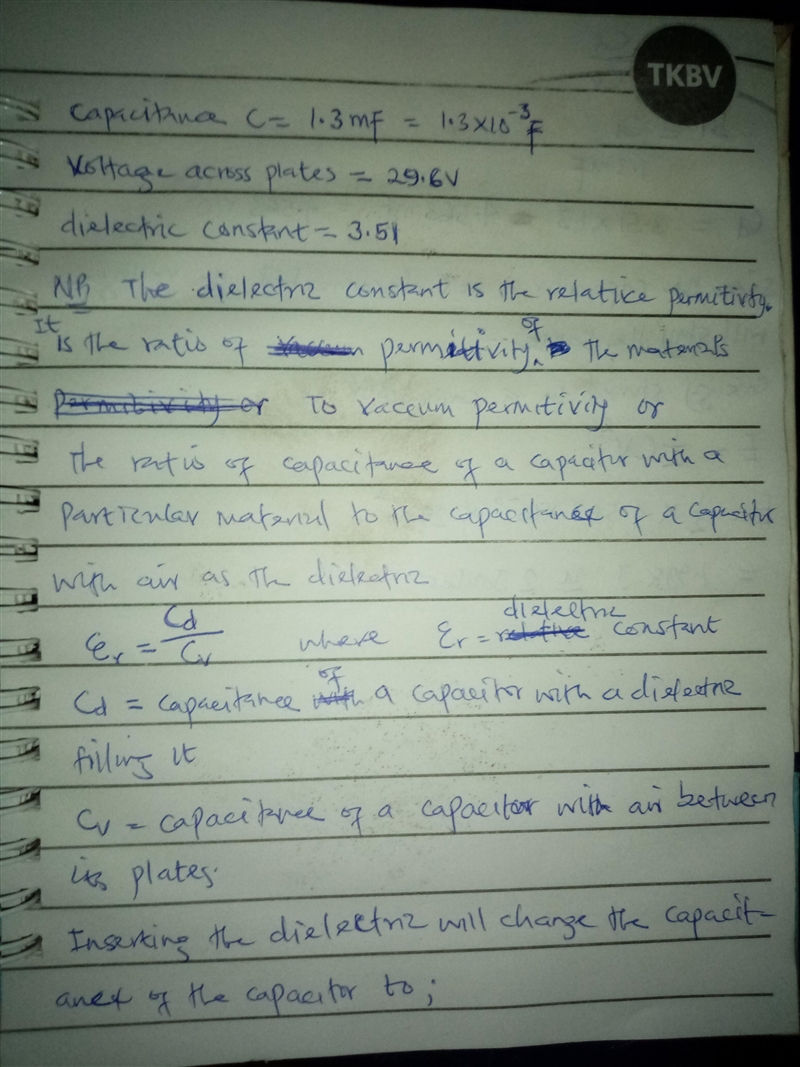 TKBV
Capacitance C = 1.3mF = 1.3x10⁻³F
Voltage across plates = 29.6V
dielectric constant = 3.51
NB The dielectric constant is the relative permitivity.
It is the ratio of permittivity of the materials
To vaccum permitivity or
the ratio of capacitance of a capacitor with a
particular material to the capacitance of a capacitor
with air as the dielectric
Er = Cd/Cv where Er = dielectric constant
Cd = capacitance of a capacitor with a dielectric
filling it
Cv = capacitance of a capacitor with air between
its plates.
Inserting the dielectric will change the capacit-
ance of the capacitor to;